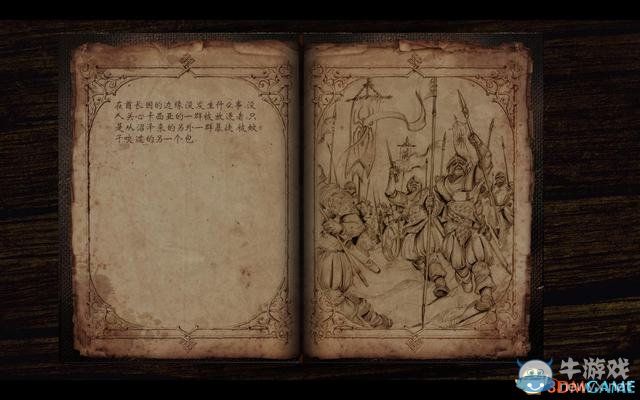 在酋长国的边缘没发生什么事,没
人关心卡西亚的一群被放逐者.只
是从沼泽来的另外一群暴徒.被蚊
子咬造的另一个包.
牛游戏
3DMGAME